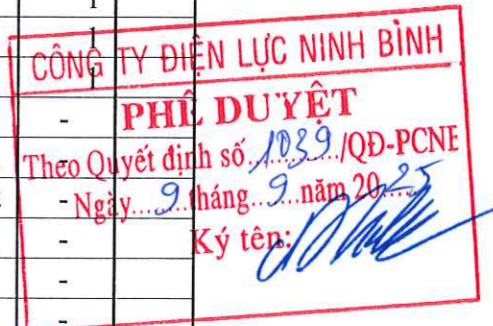 1
1
1
CÔNG TY ĐIỆN LỰC NINH BÌNH
- PHÊ DUYỆT
Theo Quyết định số 1039/QĐ-PCNB
- Ngày 9 tháng 9 năm 2025
- Ký tên:
-
-